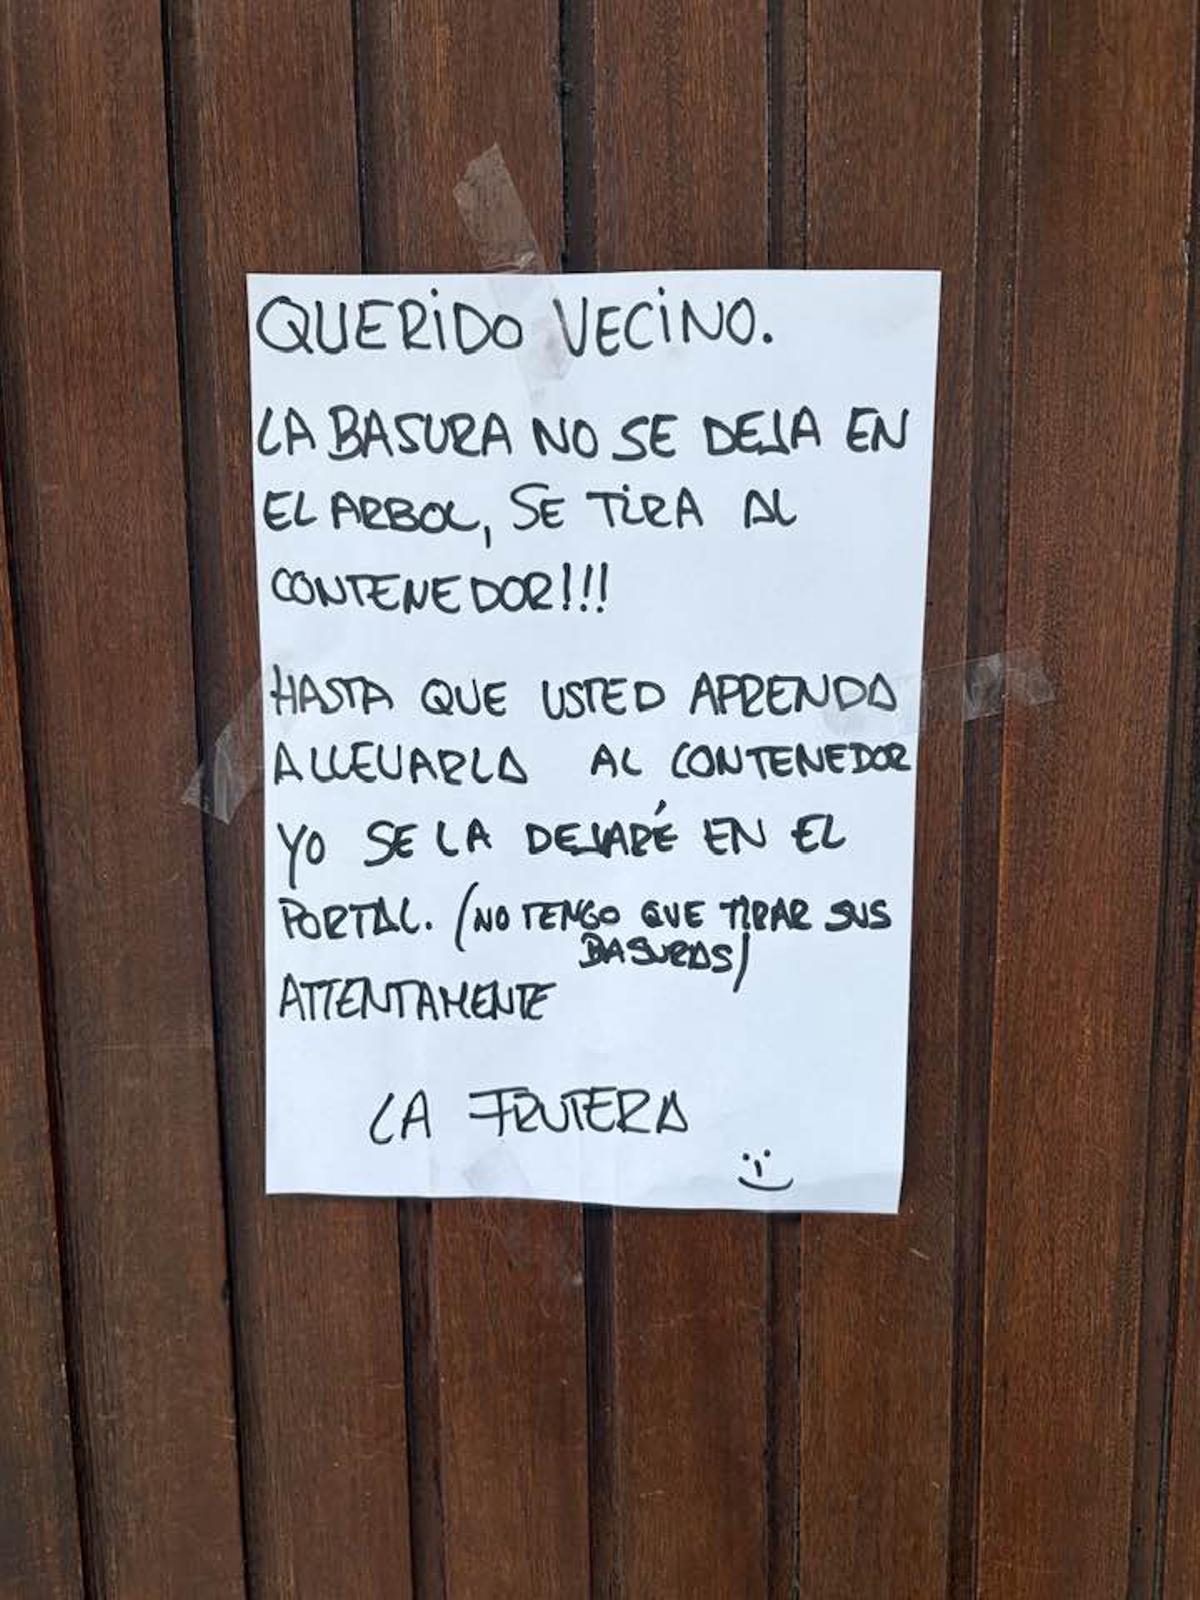 QUERIDO VECINO.
LA BASURA NO SE DEJA EN
EL ARBOL, SE TIRA AL
CONTENEDOR!!!
HASTA QUE USTED APRENDA
A LLEVARLA AL CONTENEDOR
YO SE LA DEJARÉ EN EL
PORTAL. (NO TENGO QUE TIRAR SUS
BASURAS)
ATTENTAMENTE
LA FRUTERA